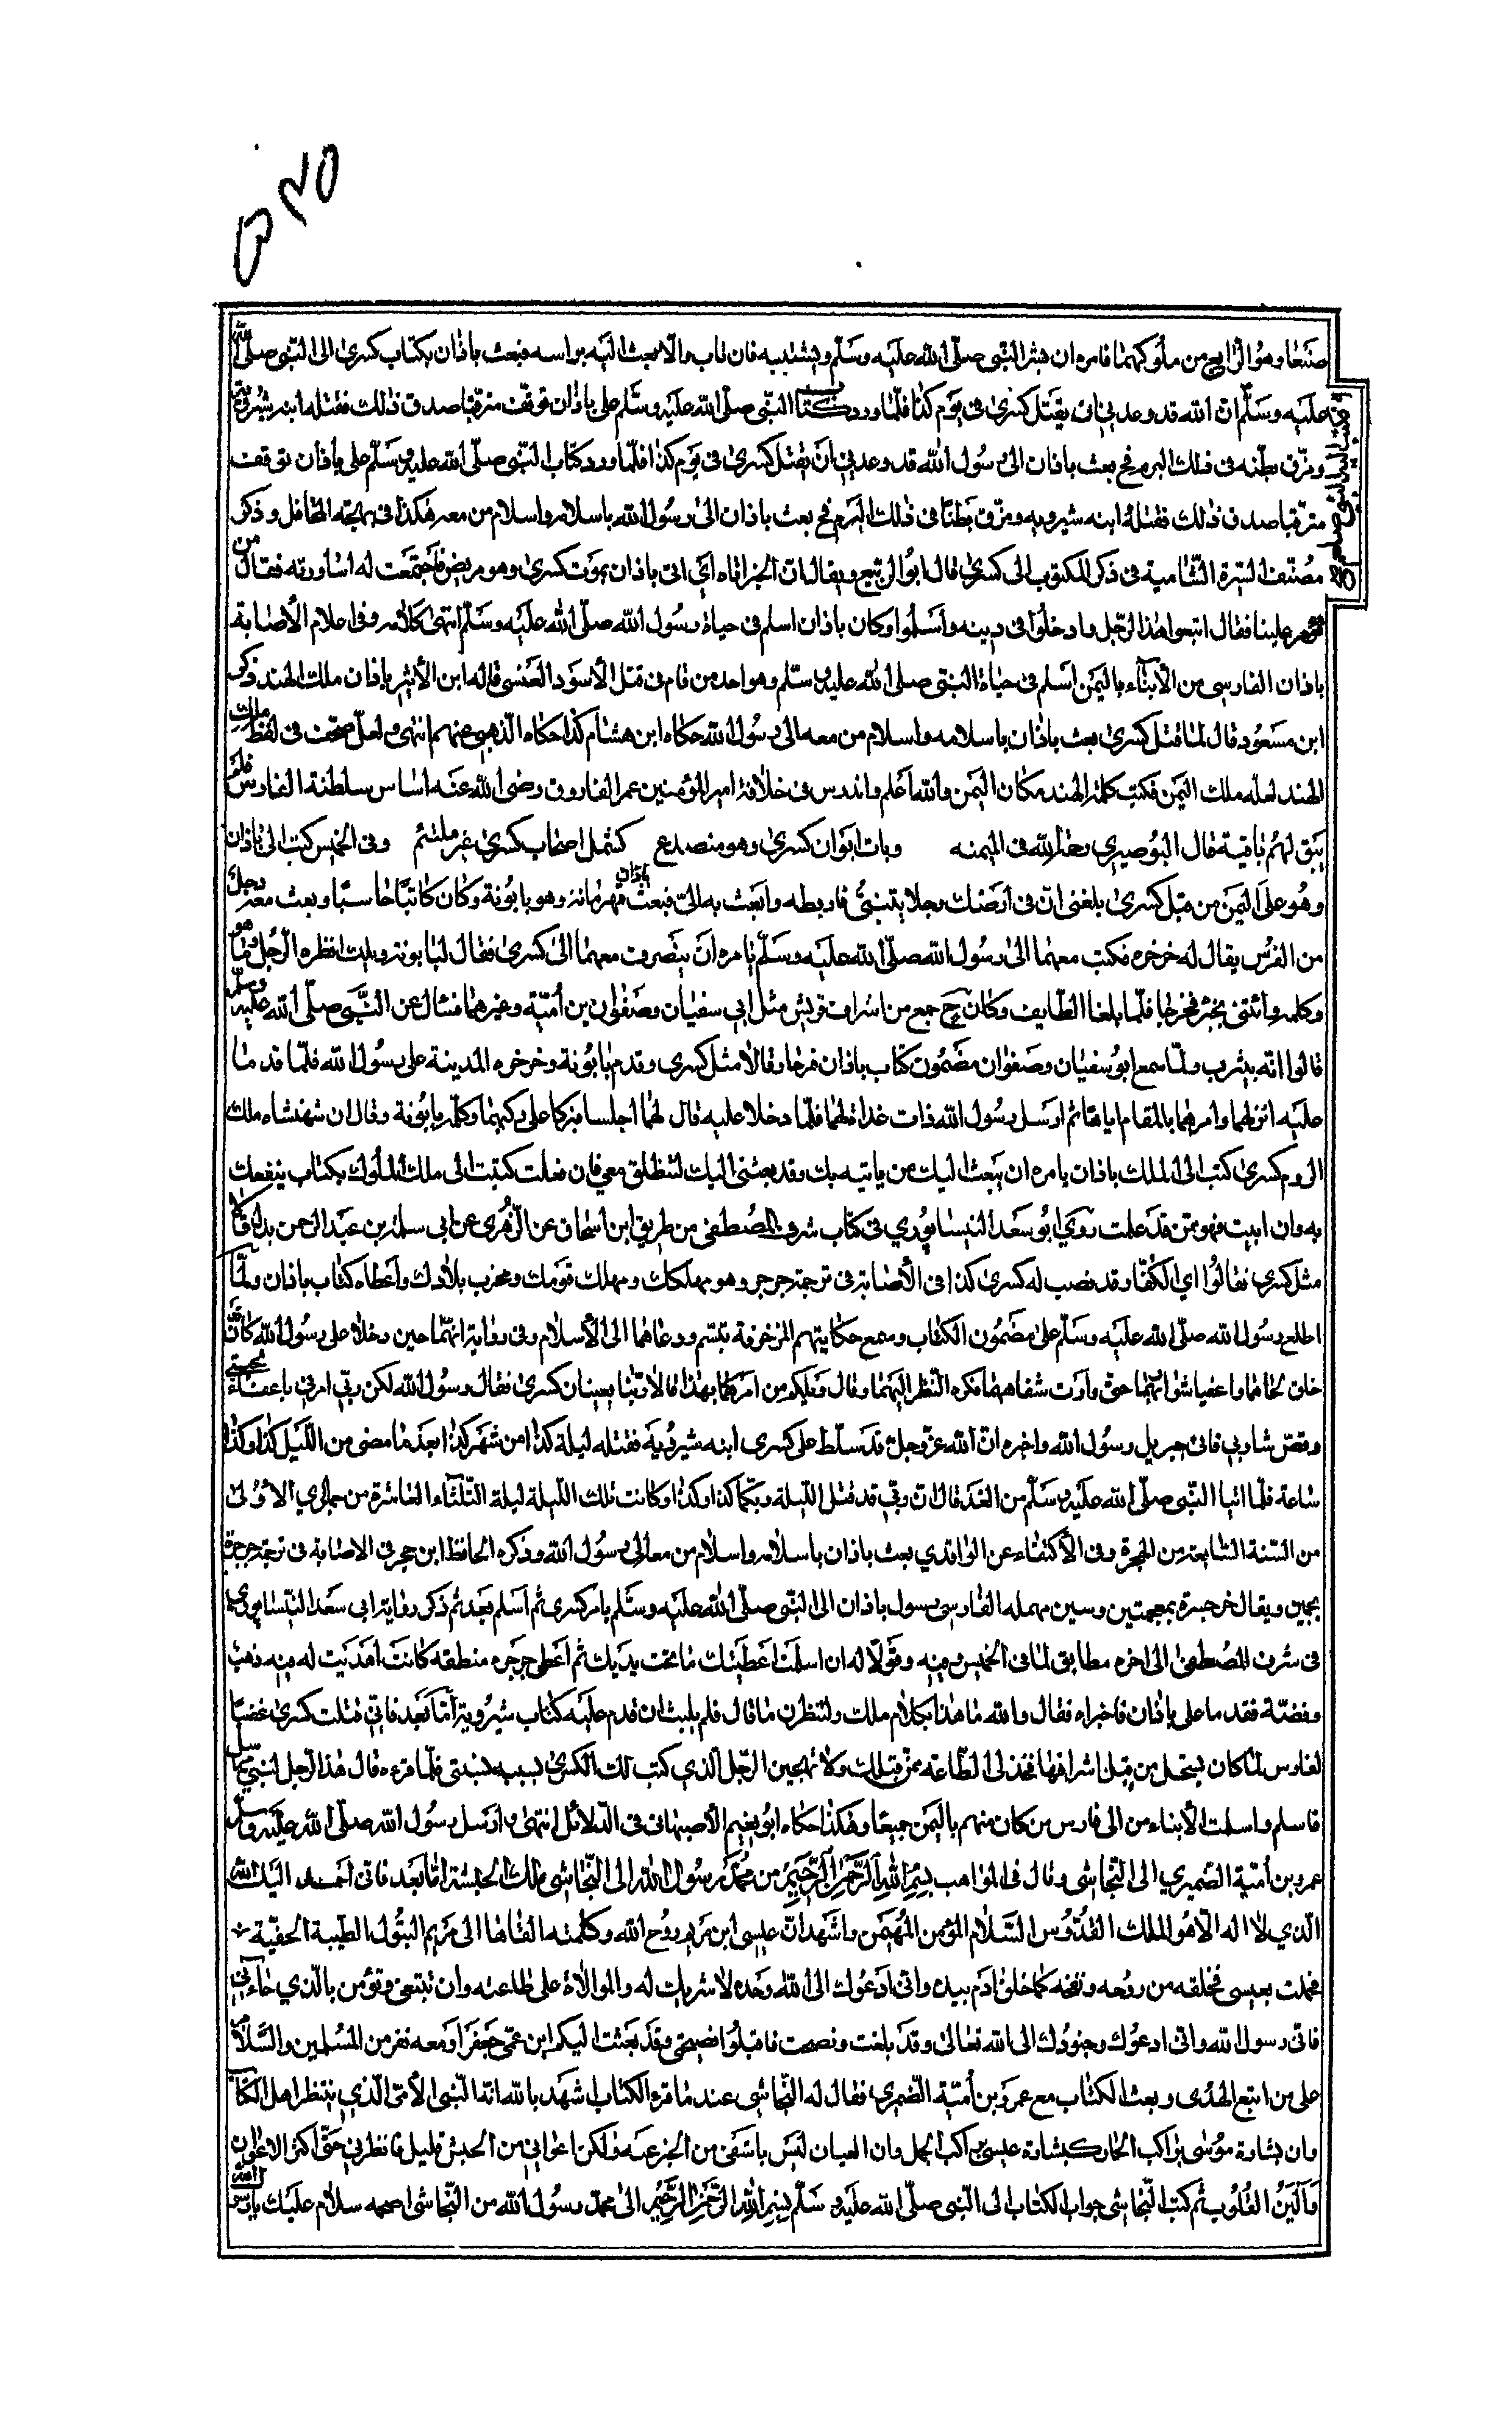 صنعا وهو الرابع من ملوكهما فامره ان هذا النبي صلى الله عليه وسلم ويستتيبه فان تاب والا يبعث اليه براسه فبعث باذان بكتاب كسرى الى النبي صلى الله
عليه وسلم ان الله قد وعدني ان يقتل كسرى في يوم كذا فلما ورد كتاب النبي صلى الله عليه وسلم على باذان توقف مترقبا صدق ذلك فقتله ابنه شيرويه
ومزق بطنه في ذلك اليوم فح بعث باذان الى رسول الله قد وعدني ان يقتل كسرى في يوم كذا فلما ورد كتاب النبي صلى الله عليه وسلم على باذان توقف
مترقبا صدق ذلك فقتله ابنه شيرويه ومزق بطنا في ذلك اليوم فح بعث باذان الى رسول الله باسلامه واسلام من معه هكذا في بهجة المحافل وذكر
مصنف السيرة الشامية في ذكر المكتوب الى كسرى قال ابو الربيع ويقال ان الخبر اتاه اي اتى باذان بموت كسرى وهو مريض فاجتمعت له اساورته فقال من
تؤمر علينا فقال اتبعوا هذا الرجل وادخلوا في دينه واسلموا وكان باذان اسلم في حياة رسول الله صلى الله عليه وسلم انتهى كلامه وفي اعلام الاصابة
باذان الفارسي من الابناء باليمن اسلم في حياة النبي صلى الله عليه وسلم وهو احد من قام في قتل الاسود العنسي قاله ابن الاثير باذان ملك الهند ذكر
ابن مسعود قال لما قتل كسرى بعث باذان باسلامه واسلام من معه الى رسول الله حكاه ابن هشام كذا حكاه الذهبي عنهم انتهى ولعل صحف في لفظ ملك
الهند لعله ملك اليمن فكتب كلمة الهند مكان اليمن والله اعلم واندرس في خلافة امير المؤمنين عمر الفاروق رضي الله عنه اساس سلطنة الفارس فلم
يبق لهم باقية قال البوصيري رحمه الله في الميمنه وبات ايوان كسرى وهو منصدع كشمل اصحاب كسرى غير ملتئم وفي الخميس كتب الى باذان
وهو على اليمن من قبل كسرى بلغني ان في ارضك رجلا يتنبئ فاربطه وابعث به الي فبعث باذان قهرمانه وهو بابونة وكان كاتبا حاسبا وبعث معه رجلا
من الفرس يقال له خرخره فكتب معهما الى رسول الله صلى الله عليه وسلم يامره ان ينصرف معهما الى كسرى فقال لبابونة ويلك انظره الرجل ما هو
وكلمه وأتني بخبره فخرجا فلما بلغا الطايف وكان ح جمع من اشراف قريش مثل ابي سفيان وصفوان بن أمية وغيرهما فسال عن النبي صلى الله عليه وسلم
قالوا انه بيثرب ولما سمع ابو سفيان وصفوان مضمون كتاب باذان فرحا وقالا مثل كسرى وقدم بابونة وخرخره المدينة على رسول الله فلما قدما
عليه انزلهما وامرهما بالمقام اياما ثم ارسل رسول الله ذات غداة لهما فلما دخلا عليه قال لهما اجلسا فبركا على ركبهما وكلمه بابونة وقال ان شهنشاه ملك
الروم كسرى كتب الى الملك باذان يامره ان يبعث اليك من ياتيه بك وقد بعثني اليك لتنطلق معي فان فعلت كتبت الى ملك الملوك بكتاب ينفعك
به وان ابيت فهو من قد علمت روي ابو سعد النيسابوري في كتاب شرف المصطفى من طريق ابن اسحاق عن الزهري عن ابي سلمة بن عبد الرحمن
مثل كسرى كذا في الأصابة في ترجمة وهو مهلكك ومهلك قومك ومخرب بلادك واعطاه كتاب باذان ولما
اطلع رسول الله صلى الله عليه وسلم على مضمون الكتاب وسمع حكايتهم المزخرفة تبسم ودعاهما الى الاسلام وفي رواية انهما حين دخلا على رسول الله كان قد
حلق لحاهما واعفيا شواربهما حتى وارت شفاههما فكره النظر اليهما وقال ويلكم من امركما بهذا قالا ربنا يعنيان كسرى فقال رسول الله لكن ربي امرني باعفاء لحيتي
وقص شاربي فاتى جبريل رسول الله واخبره ان الله عز وجل قد سلط على كسرى ابنه شيرويه فقتله ليلة كذا من شهر كذا بعد ما مضى من الليل كذا وكذا
ساعة فلما اتيا النبي صلى الله عليه وسلم من الغد قال ان ربي قد قتل الليلة ربكما كذا وكذا وكانت تلك الليلة ليلة الثلثاء العاشرة من جمادي الاولى
من السنة السابعة من الهجرة وفي الاكتفاء عن الواقدي بعث باذان باسلامه واسلام من معه الى رسول الله وذكره الحافظ ابن حجر في الاصابة في ترجمة جرجرة
بجيمين ويقال خرخسرة بمعجمتين وسين مهمله الفارسي رسول باذان الى النبي صلى الله عليه وسلم بامر كسرى ثم اسلم بعد ثم ذكر رواية ابي سعد النيسابوري
في شرف المصطفى الى اخره مطابق لما في الخميس وفيه وقولا له ان اسلمت اعطيتك ما تحت يديك ثم اعطى جرجره منطقه كانت اهديت له فيه ذهب
وفضة فقدما على باذان فاخبراه فقال والله ما هذا بكلام ملك ولننظرن ما قال فلم يلبث ان قدم عليه كتاب شيرويه اما بعد فاني قتلت كسرى غضبا
لفارس لما كان يستحل من قتل اشرافها فخذ لي الطاعة ممن قبلك ولا تهيجن الرجل الذي كتب لك الكسرى بسببه بشئ فلما قرءه قال هذا الرجل لنبي مرسل
فاسلم واسلمت الابناء من الى فارس من كان منهم باليمن جميعا وهكذا حكاه ابو نعيم الاصبهاني في الدلائل انتهى وارسل رسول الله صلى الله عليه وسلم
عمرو بن أمية الضميري الى النجاشي وقال في المواهب بسم الله الرحمن الرحيم من محمد رسول الله الى النجاشي ملك الحبشة اما بعد فاني احمد اليك الله
الذي لا اله الا هو الملك القدوس السلام المؤمن المهيمن واشهد ان عيسى ابن مريم روح الله وكلمته القاها الى مريم البتول الطيبة الحفية
فحملت بعيسى فخلقه من روحه ونفخه كما خلق ادم بيده واني ادعوك الى الله وحده لا شريك له والموالاة على طاعته وان تتبعني وتؤمن بالذي جاءني
فاني رسول الله واني ادعوك وجنودك الى الله تعالى وقد بلغت ونصحت فاقبلوا نصيحتي وقد بعثت اليكم ابن عمي جعفرا ومعه نفر من المسلمين والسلام
على من اتبع الهدى وبعث الكتاب مع عمرو بن أمية الضمري فقال له النجاشي عند ما قرء الكتاب اشهد بالله انه النبي الأمي الذي ينتظر اهل الكتاب
وان بشارة موسى براكب الحمار كبشارة عيسى براكب الجمل وان العيان ليس باشفى من الخبر عنه ولكن اعواني من الحبش قليل فانظرني حتى اكثر الاعوان
وألين القلوب ثم كتب النجاشي جواب الكتاب الى النبي صلى الله عليه وسلم بسم الله الرحمن الرحيم الى محمد رسول الله من النجاشي اصحمه سلام عليك يا رسول الله